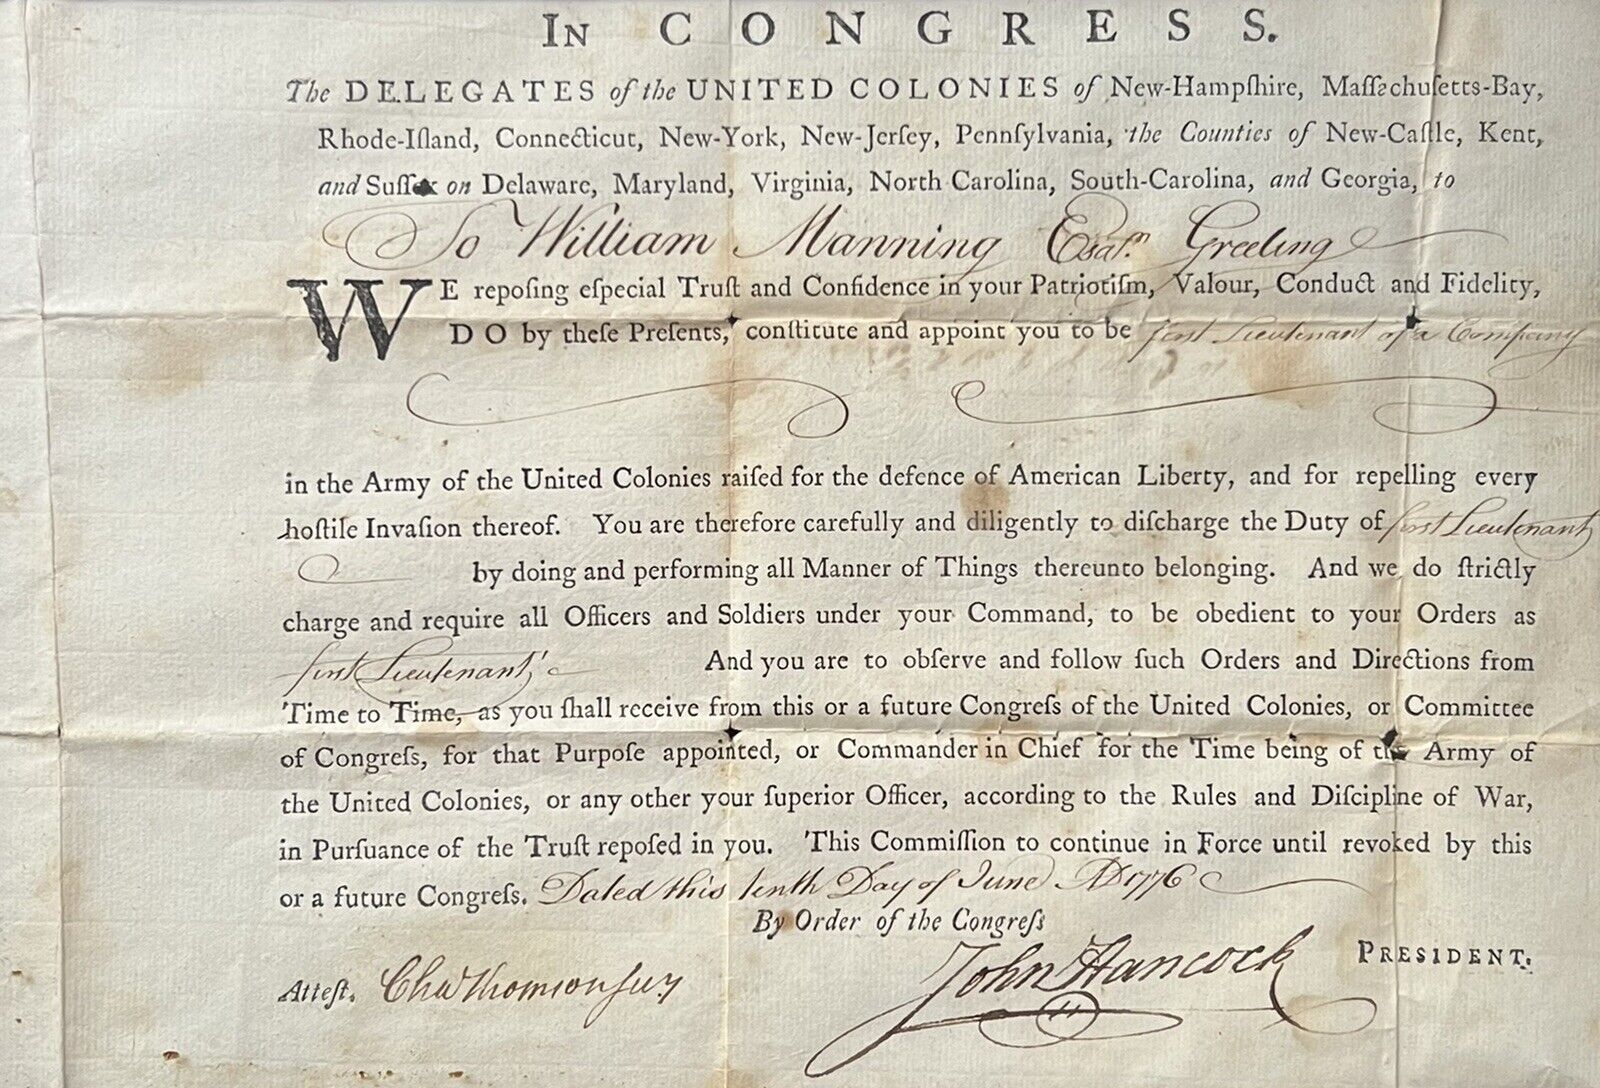 In CONGRESS.
The DELEGATES of the UNITED COLONIES of New-Hampſhire, Maſſachuſetts-Bay,
Rhode-Iſland, Connecticut, New-York, New-Jerſey, Pennſylvania, the Counties of New-Caſtle, Kent,
and Suſſex on Delaware, Maryland, Virginia, North Carolina, South-Carolina, and Georgia, to
To William Manning Greeting
WE repoſing eſpecial Truſt and Confidence in your Patriotiſm, Valour, Conduct and Fidelity,
DO by theſe Preſents, conſtitute and appoint you to be first Lieutenant of a Company
in the Army of the United Colonies raiſed for the defence of American Liberty, and for repelling every
hoſtile Invaſion thereof. You are therefore carefully and diligently to diſcharge the Duty of first Lieutenant
by doing and performing all Manner of Things thereunto belonging. And we do ſtrictly
charge and require all Officers and Soldiers under your Command, to be obedient to your Orders as
first Lieutenant And you are to obſerve and follow ſuch Orders and Directions from
Time to Time, as you ſhall receive from this or a future Congreſs of the United Colonies, or Committee
of Congreſs, for that Purpoſe appointed, or Commander in Chief for the Time being of the Army of
the United Colonies, or any other your ſuperior Officer, according to the Rules and Diſcipline of War,
in Purſuance of the Truſt repoſed in you. This Commiſſion to continue in Force until revoked by this
or a future Congreſs. Dated this tenth Day of June AD 1776
By Order of the Congreſs
John Hancock PRESIDENT.
Atteſt. Cha Thomson Secy